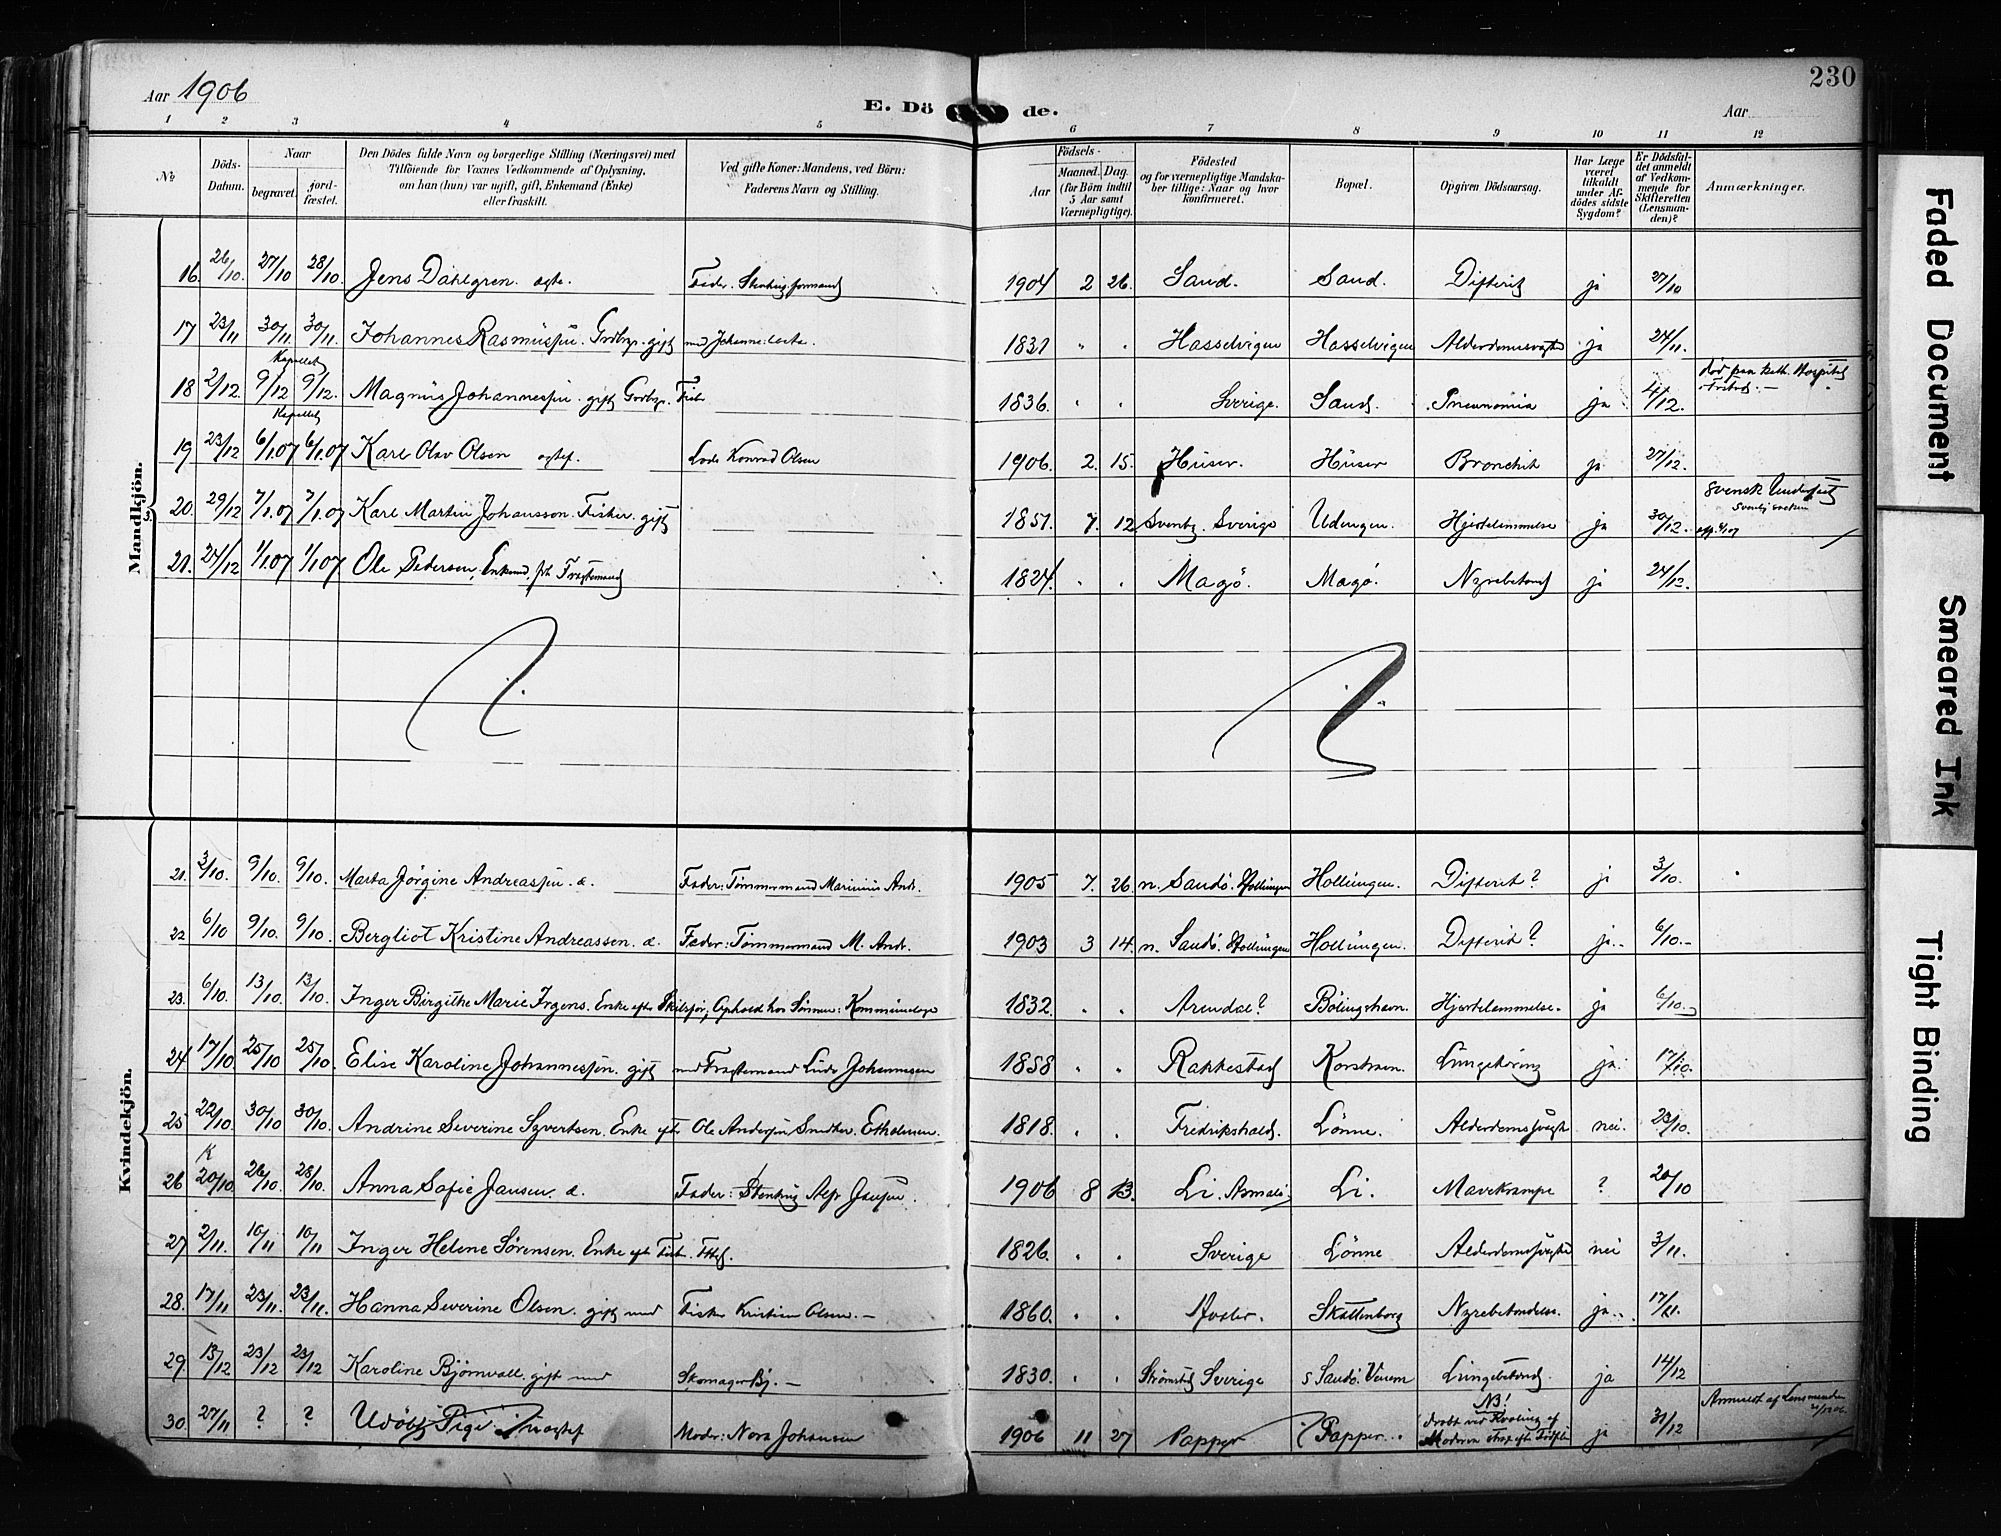 Aar 1906
E. Dö de.
Aar
230
1 2 3 4 5 6 7 8 9 10 11 12
№
Döds-Datum.
Naar
begravet.
jord-fæstet.
Den Dödes fulde Navn og borgerlige Stilling (Næringsvei) med
Tilföiende for Voxnes Vedkommende af Oplysning,
om han (hun) var ugift, gift, Enkemand (Enke)
eller fraskilt.
Ved gifte Koner: Mandens, ved Börn:
Faderens Navn og Stilling.
Födsels-
Aar
Maaned. Dag.
(for Börn indtil
5 Aar samt
Værnepligtige).
Födested
og for værnepligtige Mandska-
ber tillige: Naar og hvor
konfirmeret.
Bopæl.
Opgiven Dödsaarsag.
Har Læge
været
tilkaldt
under Af-
dödes sidste
Sygdom?
Er Dödsfal-
det anmeldt
af Vedkom-
mende for
Skifteretten
(Lensman-
den)?
Anmærkninger.
Mandkjön.
16. 26/10. 27/10 28/10. Jens Dahlgren. ægte. Fader. 1904 2 26. Sand. Sand. Difterit ja 27/10
17 23/11 30/11. 30/11. Johannes Rasmussen. Grdbr. gift med Johanne 1831 " . Hasselvigen Hasselvigen Alderdomssvaghed ja 24/11.
Kapellet
18 2/12. 9/12 9/12. Magnus Johannessen. gift Grdbr. Fisk 1836. . . Sverige. Sand. Pneumonia ja 4/12. død paa Kath. Hospital
Fr.stad.
Kapellet
19 23/12 6/1.07 6/1.07 Karl Olav Olsen ægtef. Lods Konrad Olsen 1906. 2. 15. Huser. Huser Bronchit ja 27/12.
20. 29/12 7/1.07 7/1.07 Karl Martin Johansson. Fisker. gift 1851. 7. 12 Sverige Udengen. Hjertelammelse ja 30/12. svensk Undersaat
21. 24/12 1/1.07 1/1.07 Ole Pedersen, Enkemd. fh. Fragtemand 1824. . . Magö. Magö. Nyrebetænd ja 24/12.
Kvindekjön.
21. 3/10. 9/10. 9/10. Marta Jörgine Andreassen. æ. Fader: Tömmermand Marinius Andr. 1905 7. 26. n. Sandö. Hollungen Hollungen. Difterit? ja 3/10.
22 6/10 9/10. 9/10. Bergliot Kristine Andreassen. æ. Fader: Tömmermand M. Andr. 1903 3 14. n. Sandö. Hollungen Hollungen. Difterit? ja. 6/10.-
23. 6/10. 13/10. 13/10. Inger Birgithe Marie Irgens. Enke efter Skibsfør, Ophold hos Sønnen: Kommunelæge 1832. . . Arendal? Bölingshavn. Hjertelammelse. ja 6/10.-
24 17/10. 25/10 25/10. Elise Karoline Johannessen. gift med Fragtemand Johannessen 1858 . . Rakkestad Korshavn. Lungetæring ja. 17/10.
25 22/10. 30/10 30/10. Andrine Severine Syvertsen. Enke efter Ole Andersen 1818. . . Fredrikshald. Lönne. Alderdomssvagh nei. 23/10.
K
26 20/10. 26/10. 28/10. Anna Sofie Jansen. æ. Fader: Stenhug. Alf Jansen. 1906 8 13. Li. Asmalö. Li. Mavekrampe ? 20/10
27 2/11. 10/11 10/11 Inger Helene Sörensen. Enke eft. Fisk. 1826. . . Sverige Lönne Alderdomssvaghd nei 3/11.
28. 17/11 23/11. 23/11. Hanna Severine Olsen. gift med Fisker Kristian Olsen.- 1860. . . Hvaler. Skattenborg Nyrebetændelse. ja. 17/11.
29. 13/12 23/12 23/12 Karoline Björnvall. gift med Skomager Bj.- 1830. . . Strömstad Sverige S Sandö. Lungebetænd. ja 14/12
30. 27/11 ? ? Udöbt Pige uægtef Moder: Nora Johansen 1906 11 27 Papper Papper. NB!
dræbt ved Kvæling af
Moderen strax efter Födsln ja 31/12 Anmeldt af Lensmanden
Faded Document
Smeared Ink
Tight Binding